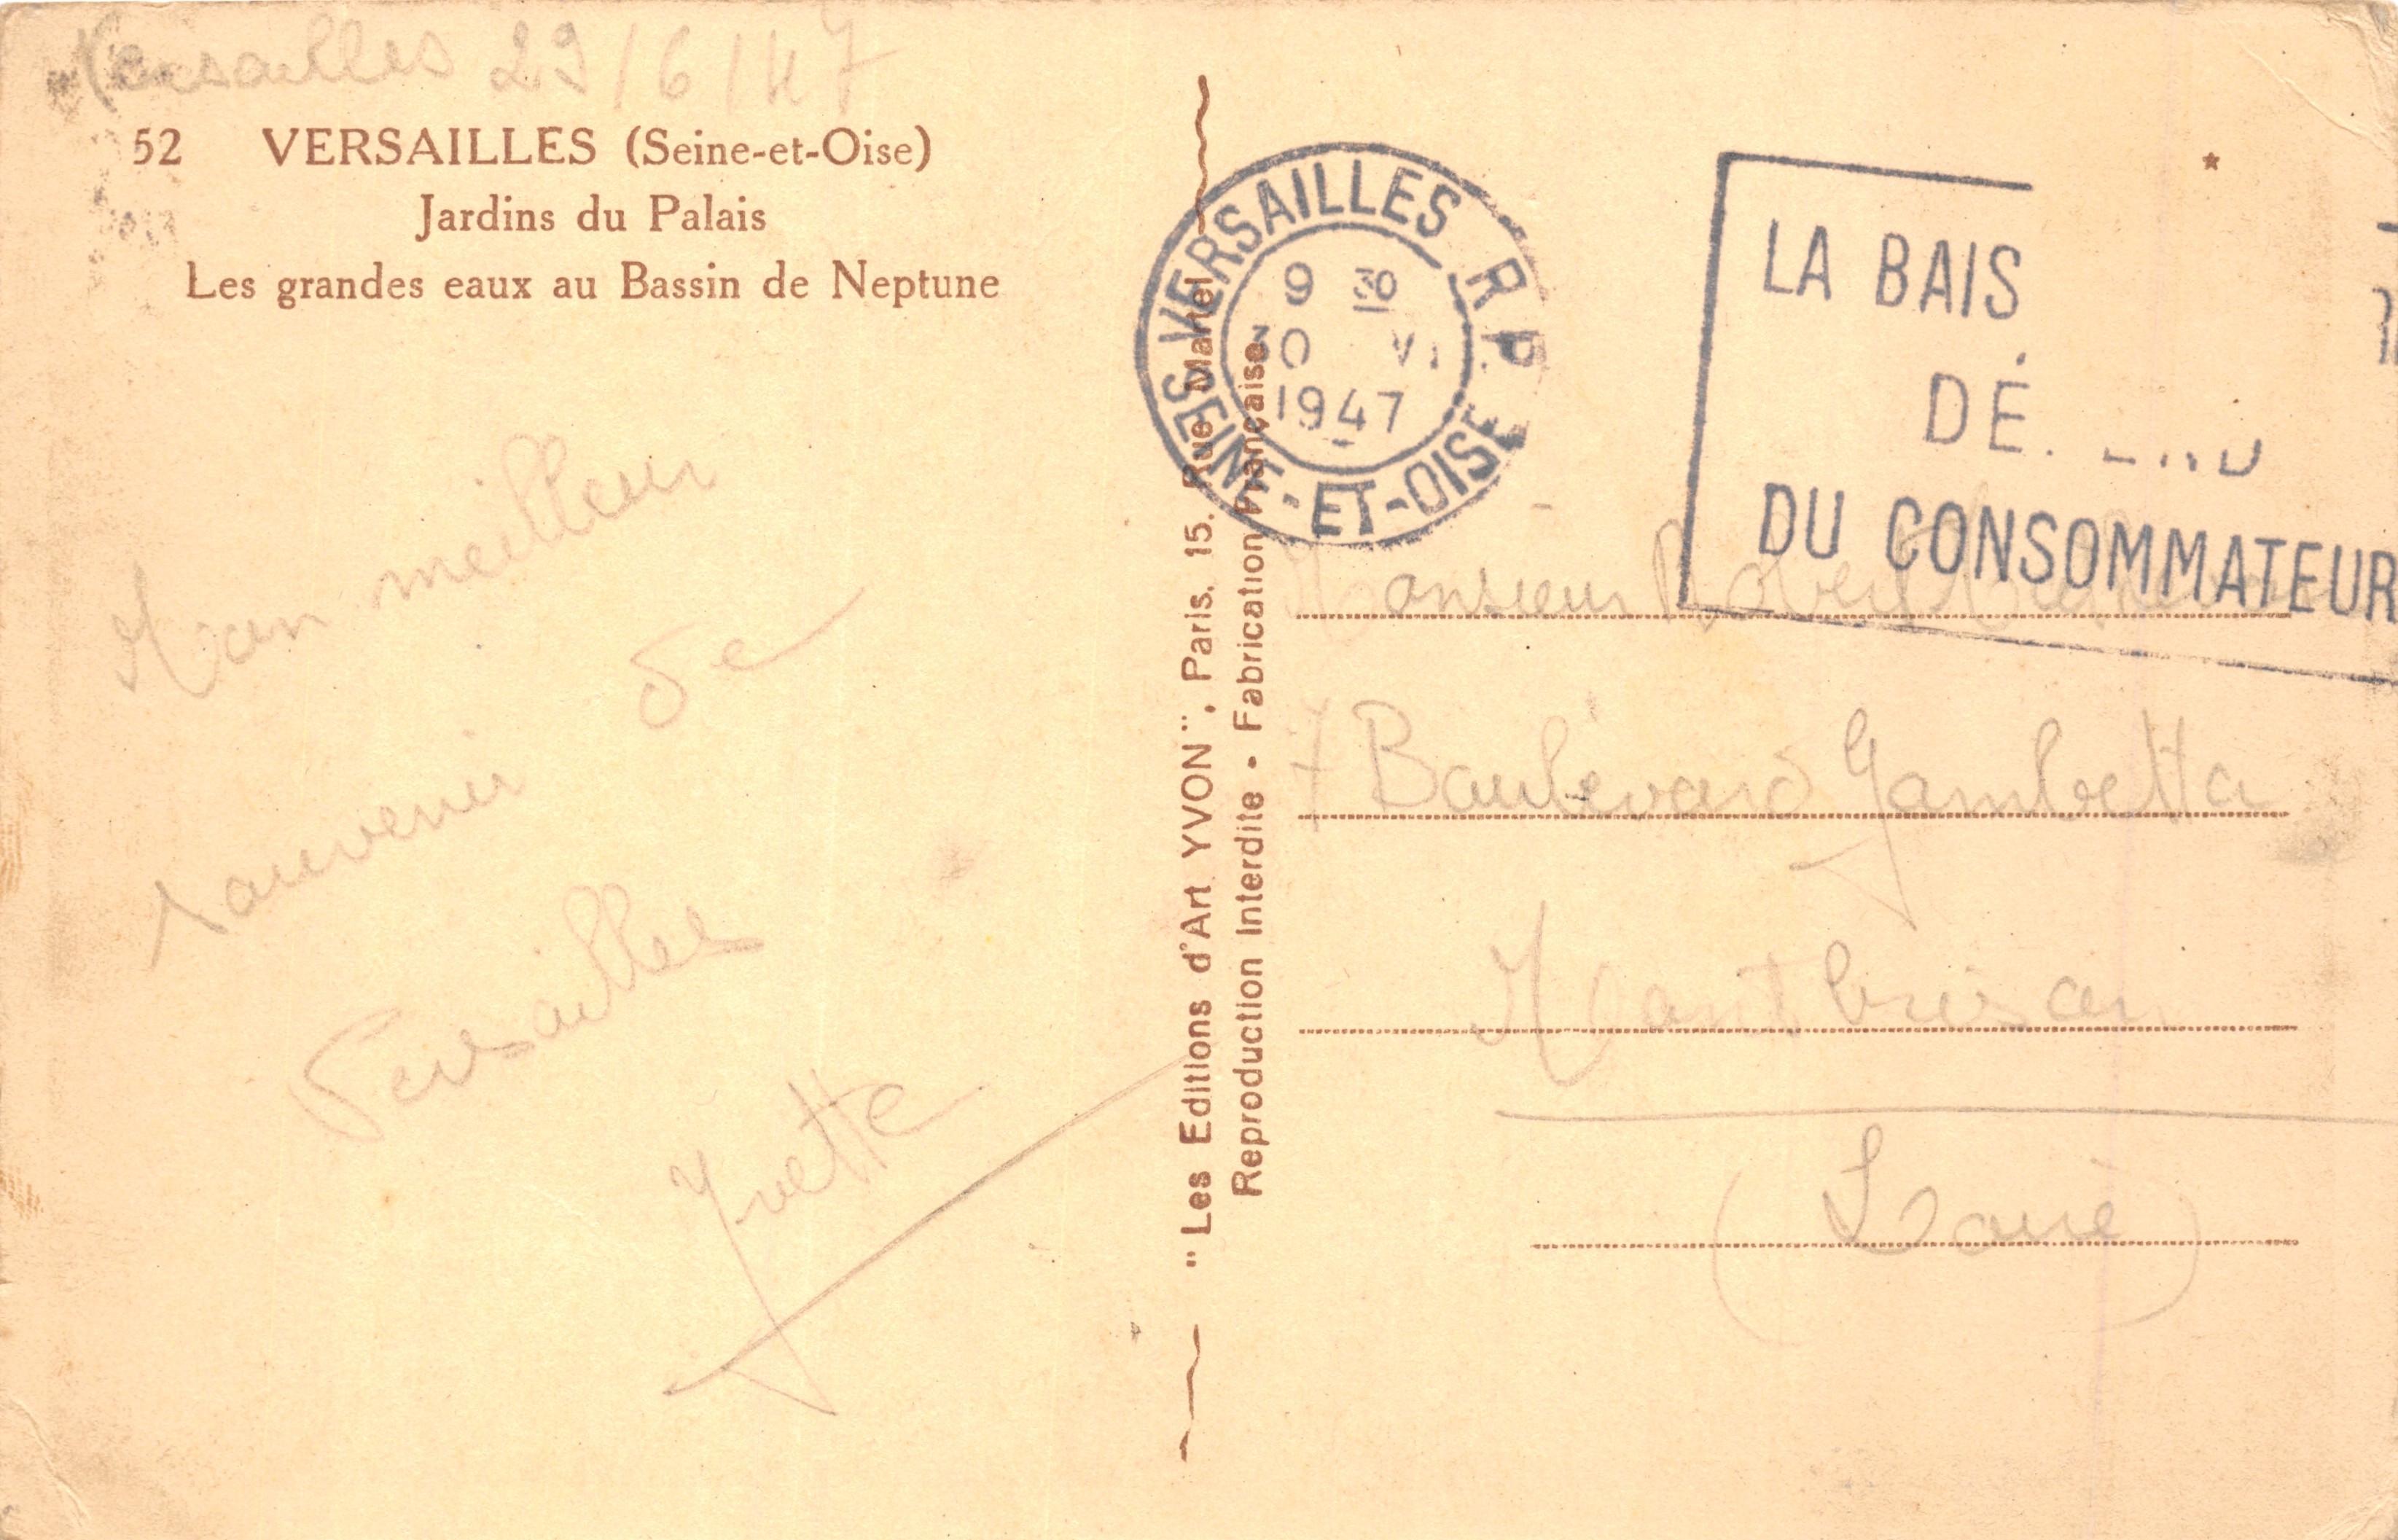 Versailles 29/6/47
52 VERSAILLES (Seine-et-Oise)
Jardins du Palais
Les grandes eaux au Bassin de Neptune
Mon meilleur
souvenir de
Versailles
Yvette
"Les Editions d'Art YVON", Paris. 15. Rue Martel
Reproduction Interdite - Fabrication Française
VERSAILLES R P
SEINE-ET-OISE
9 30
30 VI
1947
LA BAIS
DÉ
DU CONSOMMATEUR
Monsieur Robert
7 Boulevard Gambetta
Montbrison
(Loire)